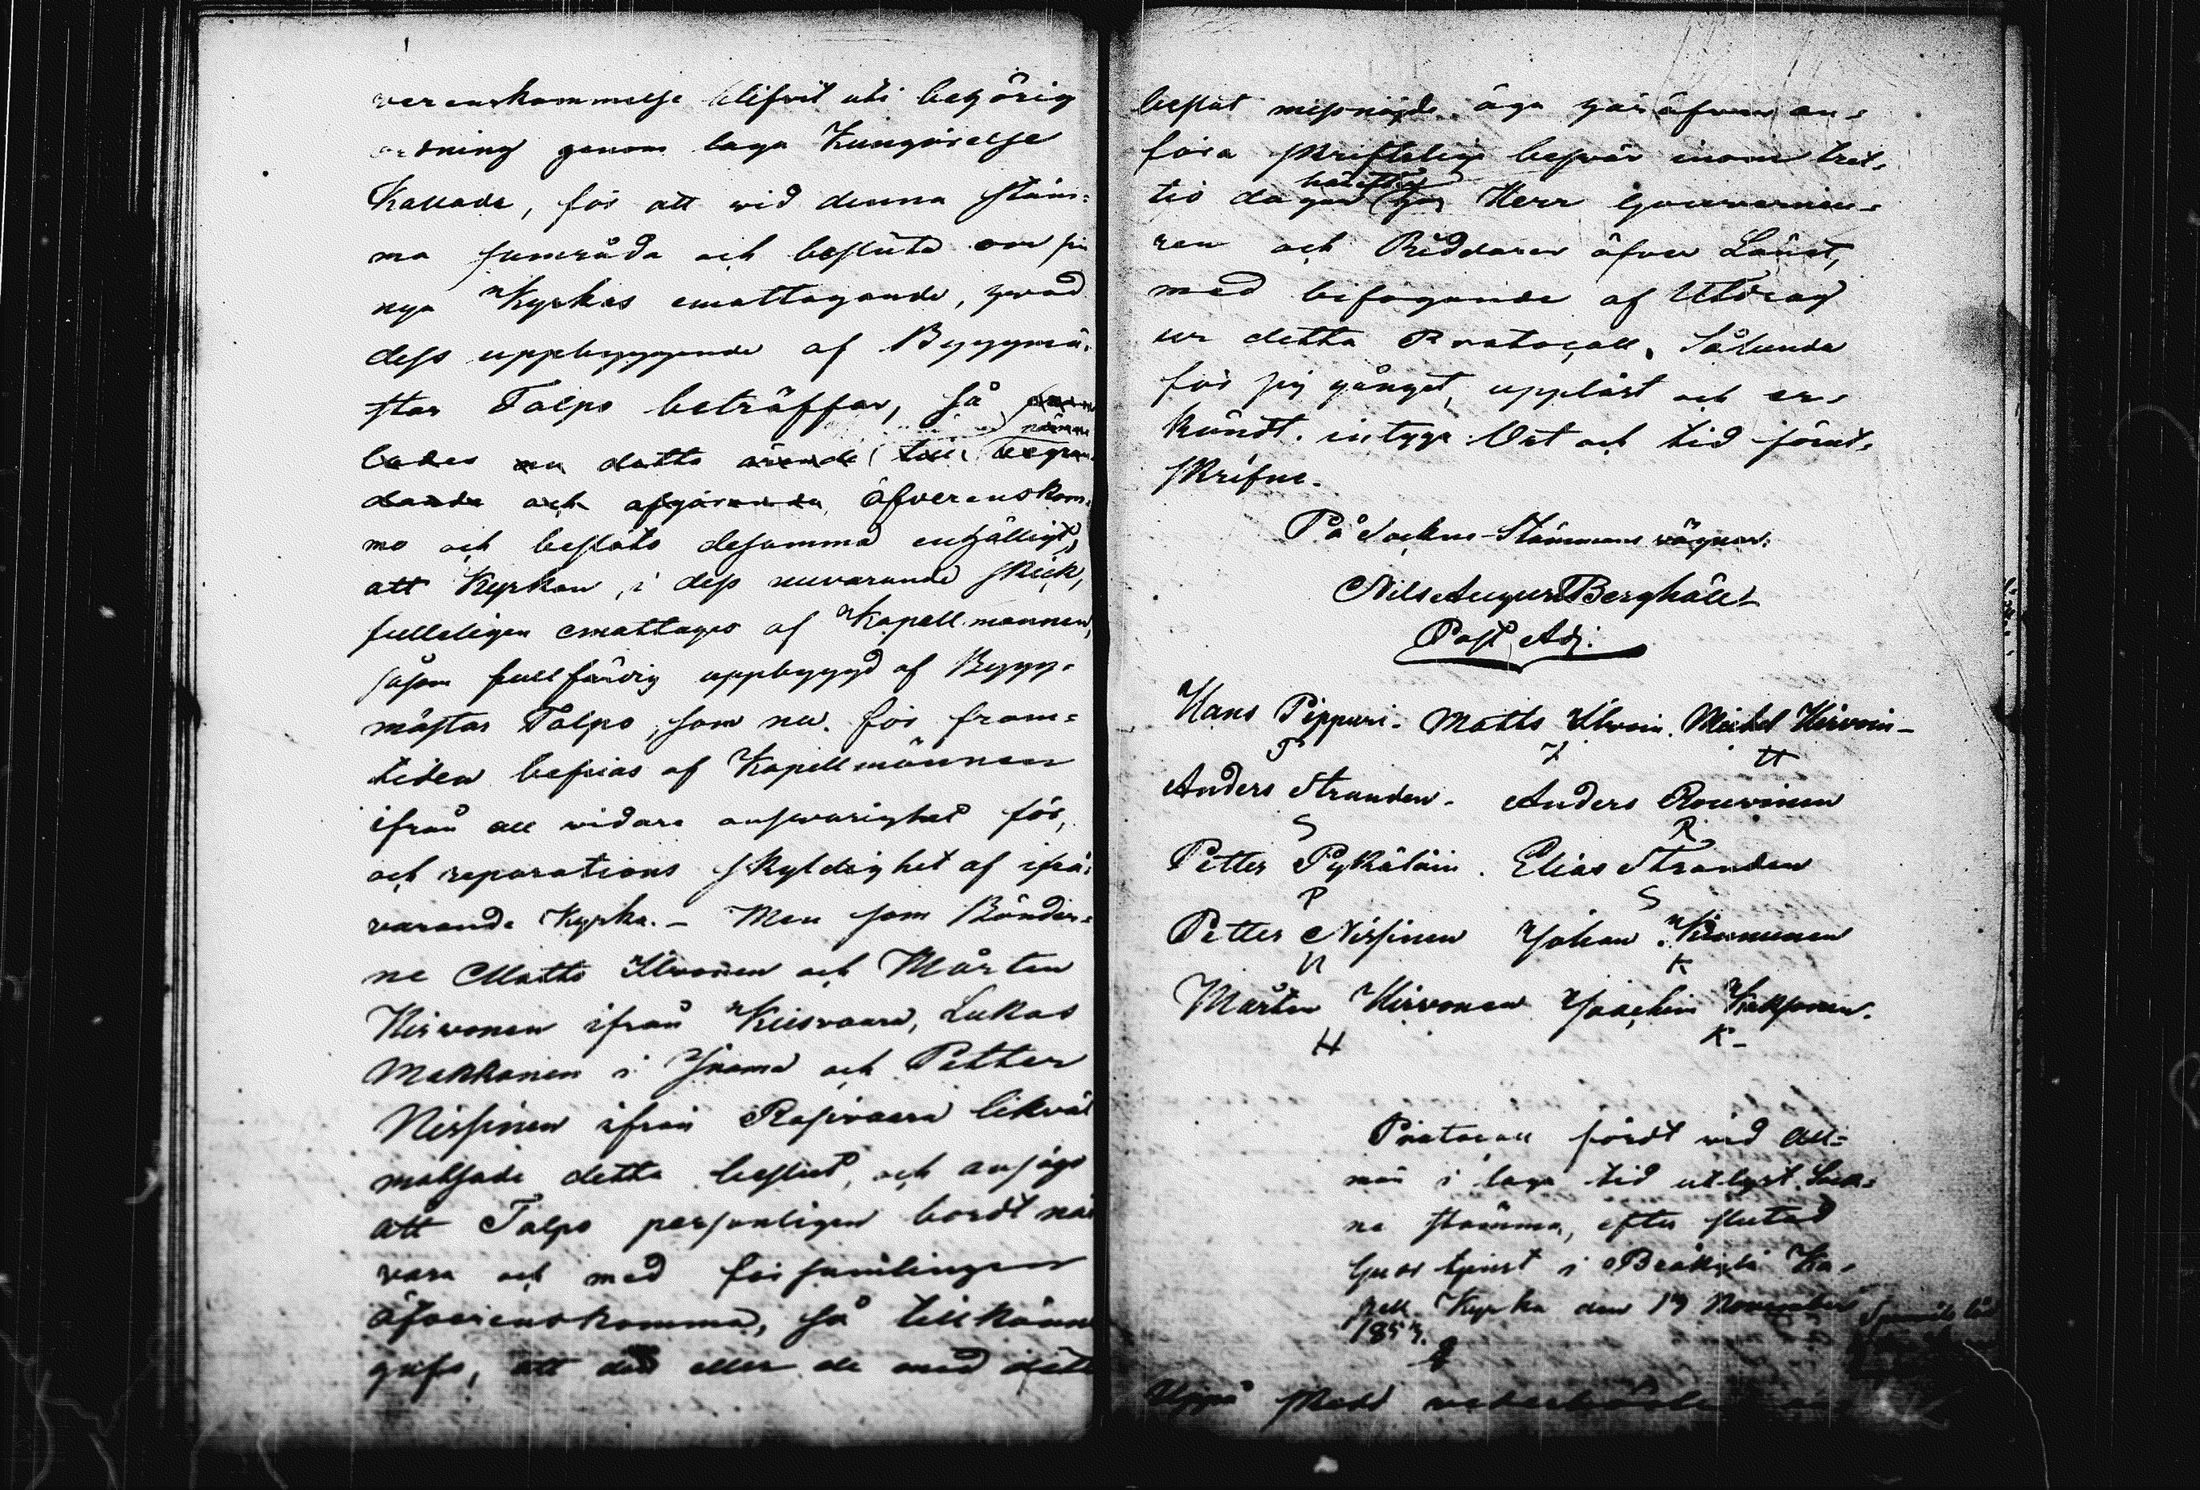 verenskommelse blifvit uti behörig
ordning genom laga Kungörelse
Kallade, för att wid denna stäm-
ma samråda och besluta om sin
nya Kyrkas emottagande, hwad
dess uppbyggande af Byggmä-
star Talpo beträffar, så
lades nu detta ärende till begrun-
dande och afgörande, öfverenskom-
mo och beslöts desamma enhälligt,
att Kyrkan, i dess nuvarande skick,
fulleligen emottages af Kapellmannen,
såsom fullfärdig uppbyggd af Bygg-
mästar Talpo, som nu för fram-
tiden befrias af Kapellmännen
ifrån all widare answarighet för,
och reparations skyldighet af ifrå-
varande Kyrka. - Men som Bönder-
ne Matts Ilvonen och Mårten
Hirvonen ifrån Kiisvaara, Lukas
Makkonen i Juoma och Petter
Nissinen ifrån Rasivaara likväl
motsade detta beslut, och ansågo
att Talpo personligen bordt när
vara och med församlingen
öfverenskomma, så tillkänna
gafs, att den eller de med detta
beslut missnöjde äga häröfver an-
föra skrifteliga besvär inom tret-
tio dagar häreffter hos Herr Gouverneu-
ren och Riddaren öfver Länet,
med bifogande af Utdrag
ur detta Protocoll. Sålunda
för sig gånget, uppläst och er-
kändt. intyga Ort och tid förut-
skrifne.
På Sockne-Stämmans vägnar:
Nils August Berghäll
Past. Adj.
Hans Pippuri. Matts Ilvoin. Michel Hirvoin-
P I H
Anders Stranden. Anders Rouvinen
S R
Petter Pykäläin. Elias Stranden
P S
Petter Nissinen Johan Kinnunen
N K
Mårten Hirvonen Joachim Kekkonen.
H K-
Protocoll fördt wid all-
män i laga tid utlyst Sock-
ne stämma, efter slutad
Gudstjenst i Bräkylä Ka-
pell Kyrka den 19 November
1857.
Uppå skedd